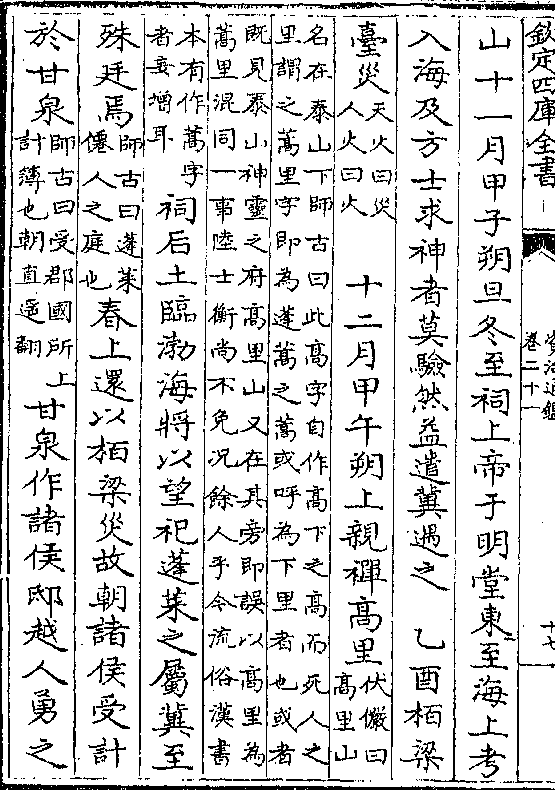 欽定四庫全書
資治通鑑
卷二十一
十七
山十一月甲子朔旦冬至祠上帝于明堂東至海上考
入海及方士求神者莫驗然益遣冀遇之　乙酉栢梁
臺災天火曰災人火曰火　十二月甲午朔上親禪高里伏儼曰高里山
名在泰山下師古曰此高字自作高下之高而死人之
里謂之蒿里字即為蓬蒿之蒿或呼為下里者也或者
既見泰山神靈之府高里山又在其旁即誤以高里為
蒿里混同一事陸士衡尚不免況餘人乎今流俗漢書
本有作蒿字者妄增耳祠后土臨渤海將以望祀蓬萊之屬冀至
殊廷焉師古曰蓬萊僊人之庭也春上還以栢梁災故朝諸侯受計
於甘泉師古曰受郡國所上計簿也朝直遥翻甘泉作諸侯邸越人勇之